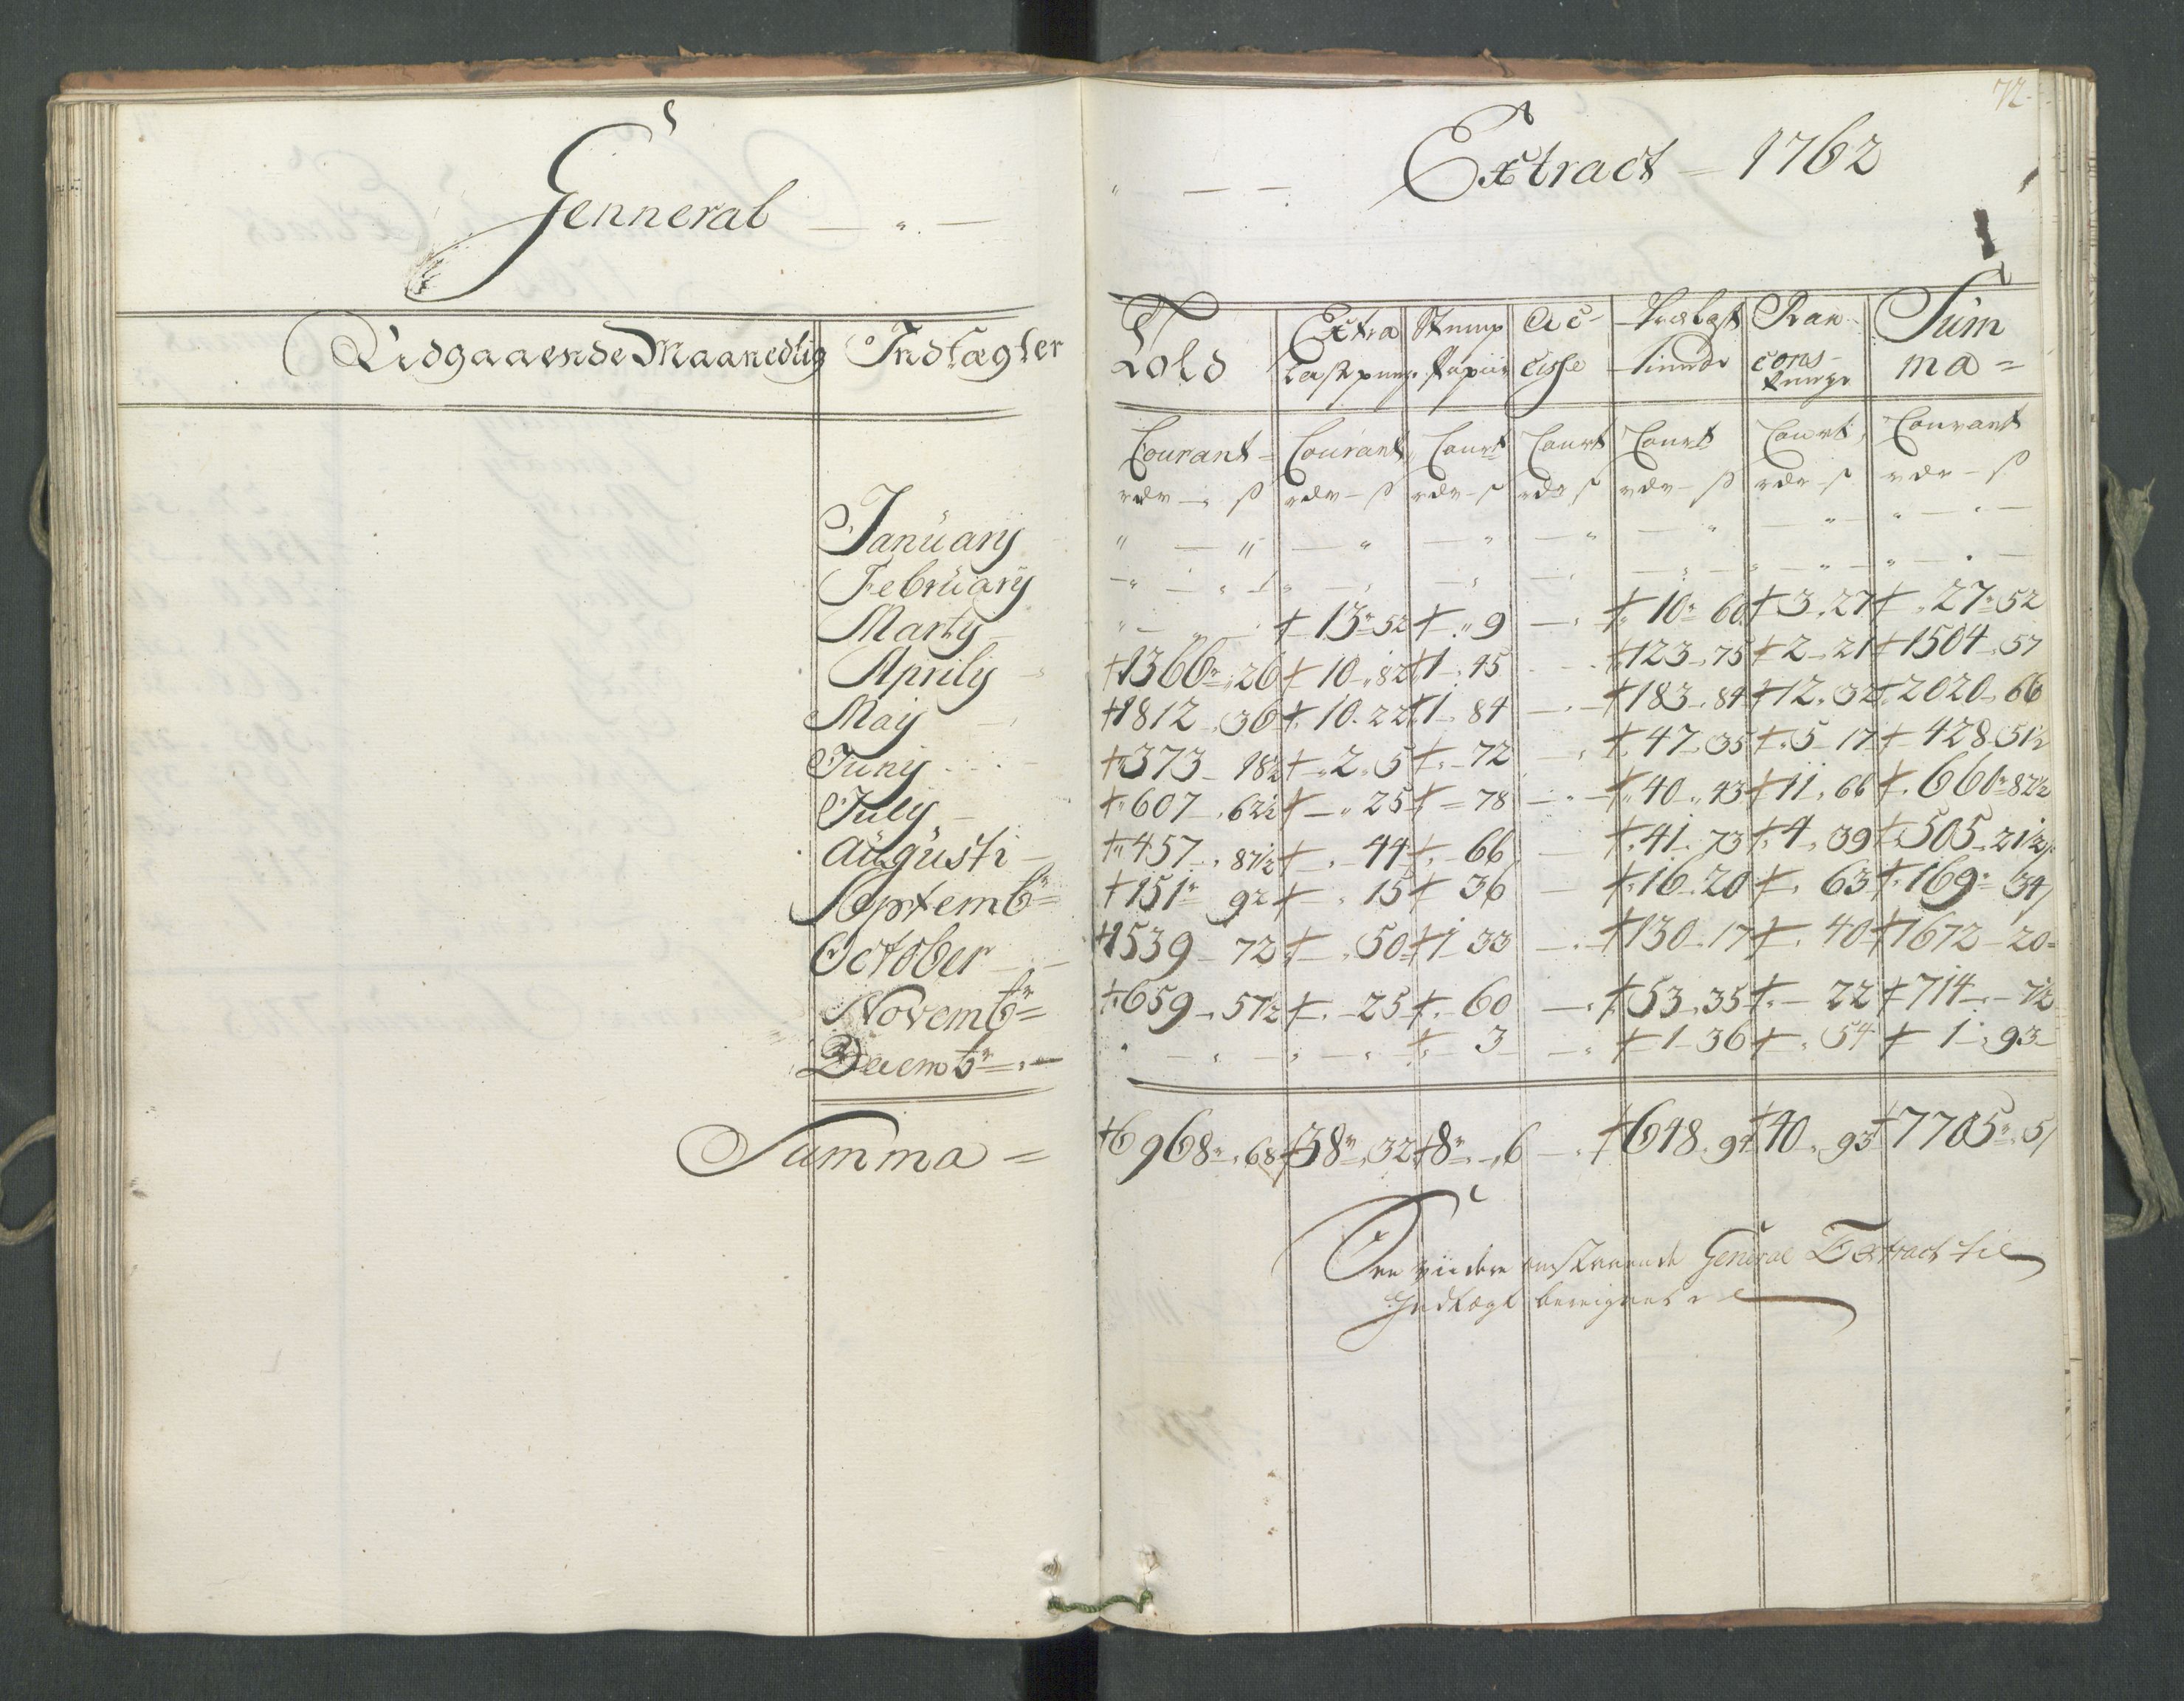 72
Genneral — " —
" — — Extract — 1762
Udgaaende Maanedlig Indtægter
Told | Extra | Stemp | Ac- | Trælast | Ran- | Sum
Lastpenge | Papiir | cisse | tiende | cons- penge | ma =
Courant | Courant | Court | Court | Court | Court | Courant
rdr — ß | rdr — ß | rdr — ß | rdr ß | rdr — ß | rdr — ß | rdr — ß
January " — " | — " | — " | — " | — " | — " | " — " —
February — " — " | " — " | — " | — " | — " | — " | " — " —
Marty " — | 13 " 52 | " 9 | — " | 10 " 60 | 3 " 27 | 27 " 52
Aprily 1366 " 26 | 10 " 82 | 1 " 45 | | 123 " 75 | 2 " 21 | 1504 " 57
May 1812 " 36 | 10 " 22 | 1 " 84 | — " | 183 " 84 | 12 " 32 | 2020 " 66
Juny 373 — 18½ | 2 " 5 | " — 72 | — " | 47 " 35 | 5 — 17 | 428 " 51½
July 607 " 62½ | — " 25 | = 78 | — " | 40 " 43 | 11 " 66 | 660 " 82½
Augusti 457 " 87½ | " — 44 | " — 66 | — | 41 " 73 | 4 " 39 | 505 " 21½
Septembr = 151 " 92 | — " 15 | 36 | — | 16 " 20 | " 63 | 169 " 34
October 1539 — 72 | — " 50 | 1 — 33 | — " | 130 " 17 | " 40 | 1672 — 20
Novembr = 659 " 57½ | " — 25 | " 60 | — " | 53 " 35 | " — 22 | 714 " — 7½
Decembr = " — " — " | " — " | " 3 | — " | 1 — 36 | " 54 | 1 " 93
Summa = 6968 " 68 | 38 " 32 | 8 " — 6 | — " | 648 " 94 | 40 " 93 | 7705 " 5
General Extract til
Indtægt